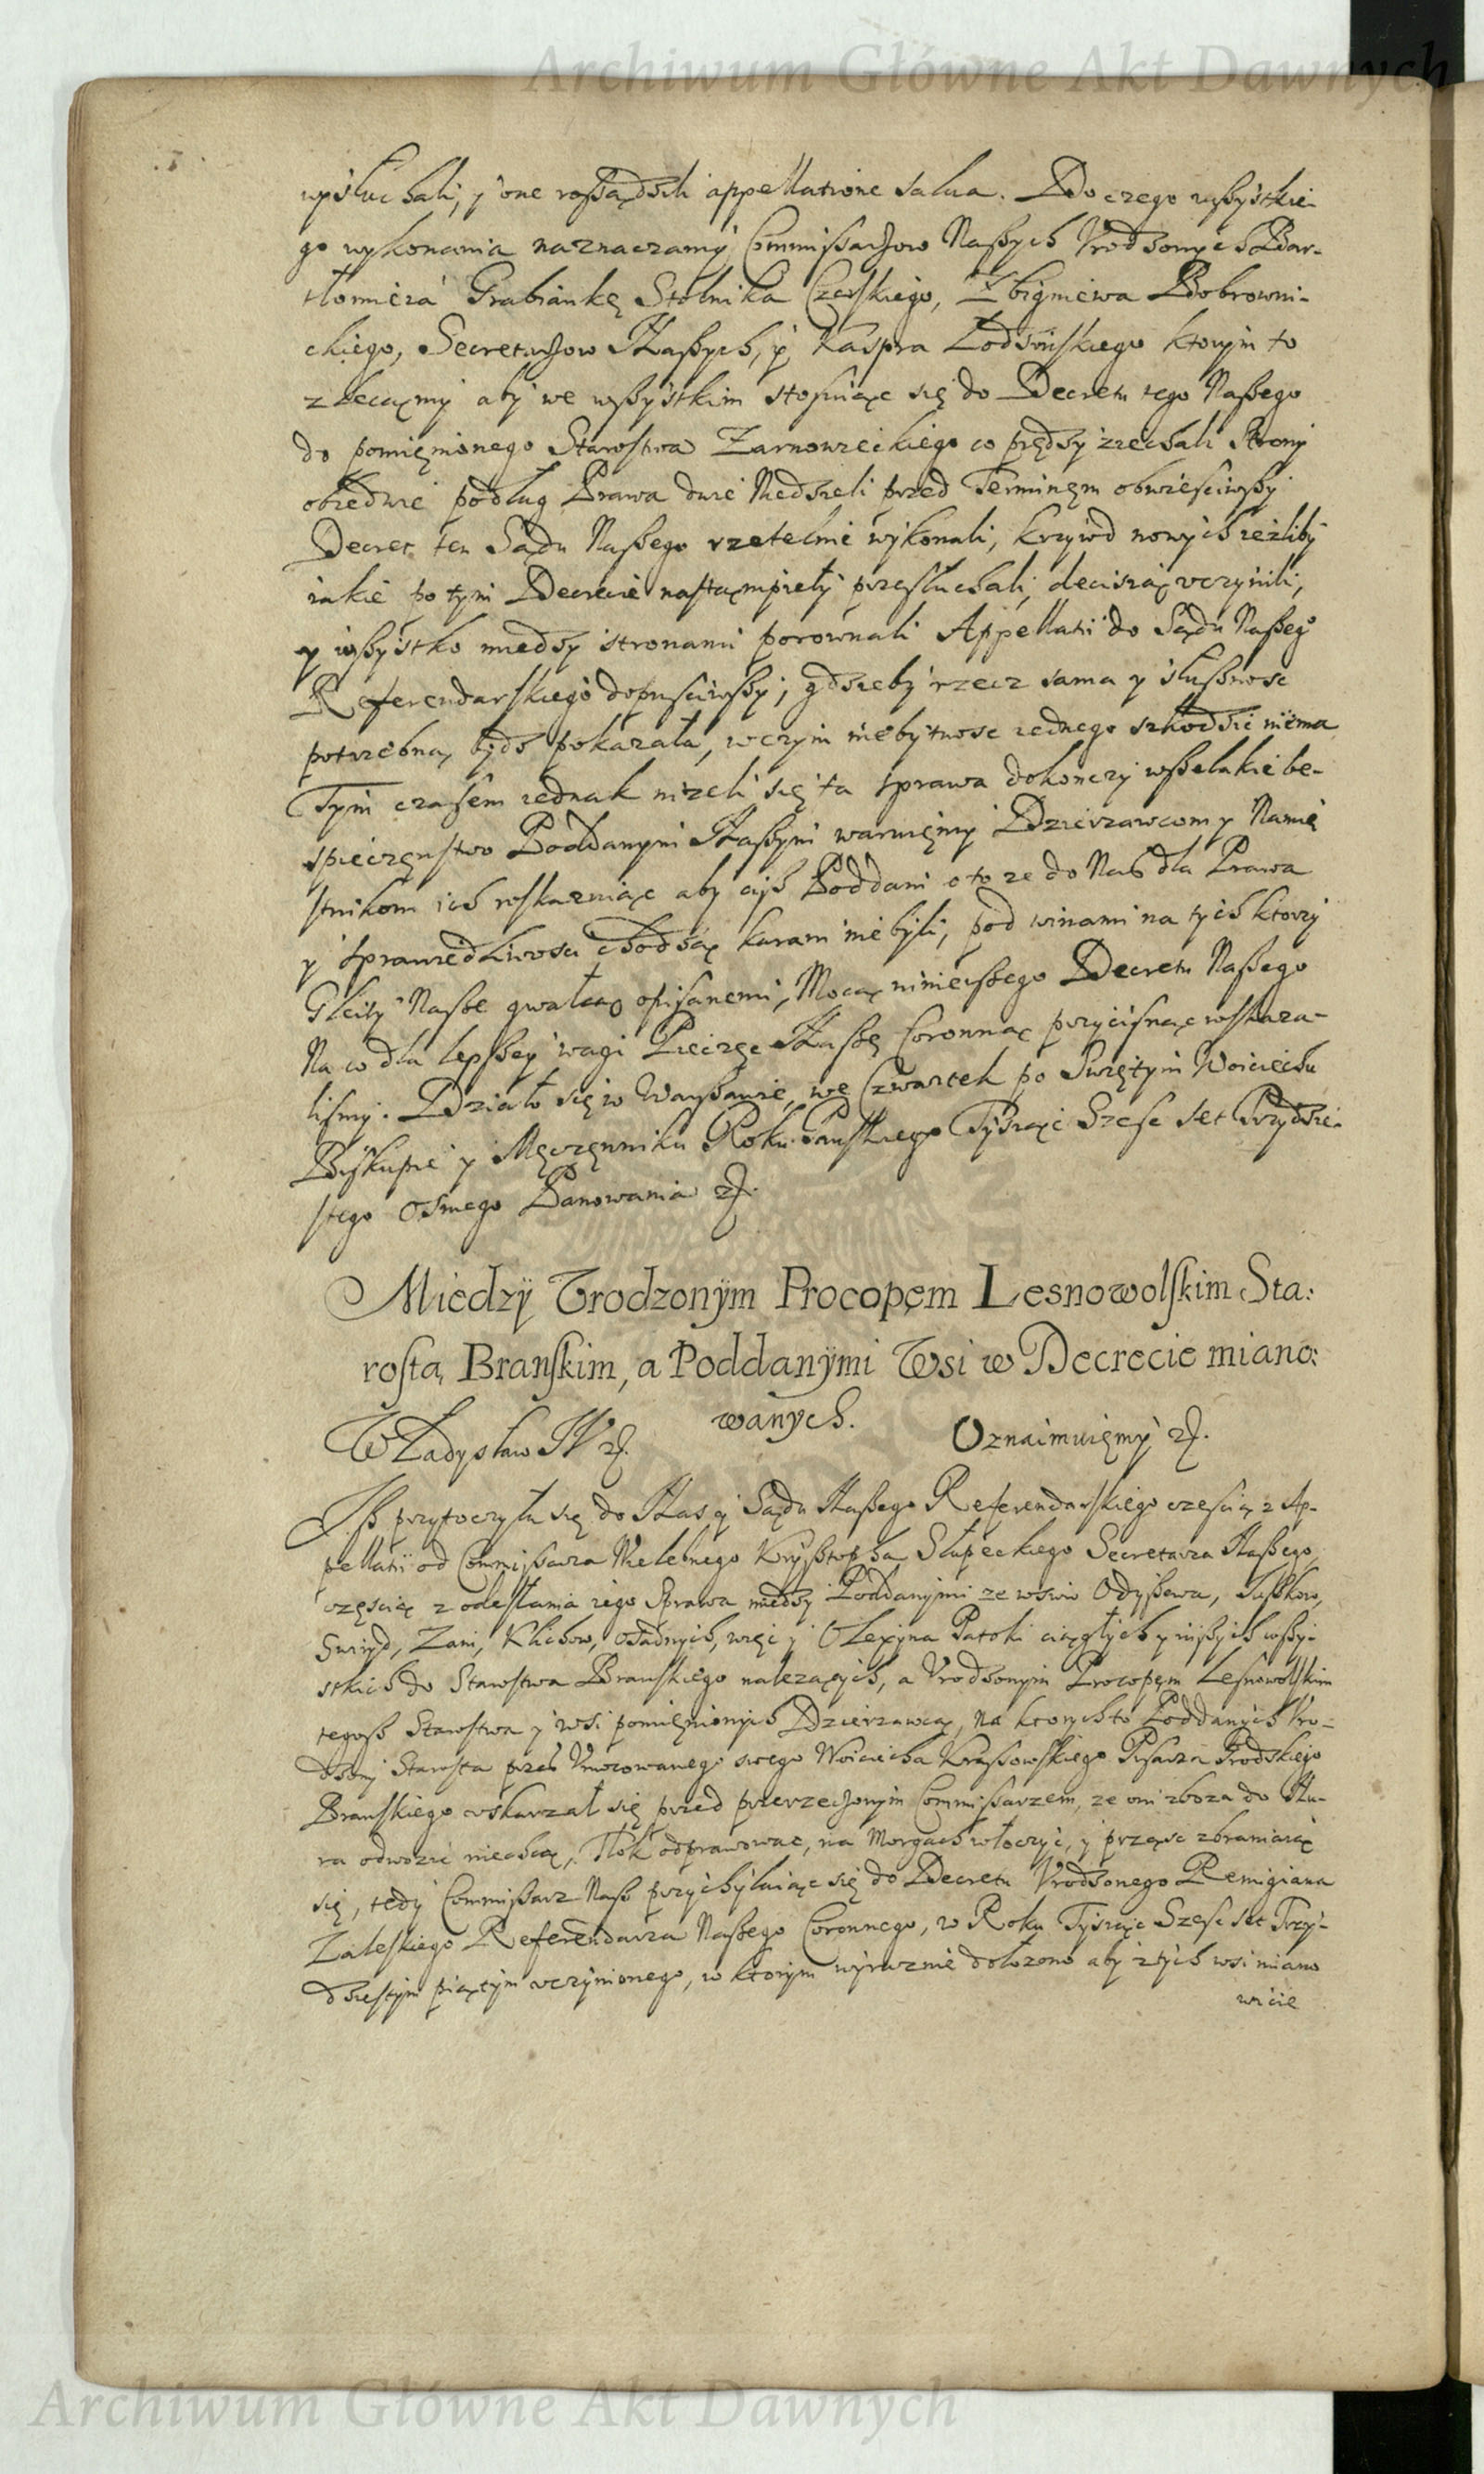 Archiwum Główne Akt Dawnych
wysłuchali, y one rossądzili appellatione salua. Do czego wßystkie-
go wykonania naznaczamy Commissarzow Naßych Vrodzonych Bar-
tłomieia Grabiankę Stolnika Czerskiego, Zbigniewa Bobrowni-
ckiego, Secretarzow Naßych, y Kaspra Łodzińskiego ktorym to
zlecamy aby we wßystkim stosuiąc się do Decretu tego Naßego
do pomięnionego Starostwa Zarnowieckiego co prędzy ziechali Strony
obiedwie podług Prawa dwie Niedzieli przed Terminęm obwieściwßy
Decret ten Sądu Naßego rzetelnie wykonali, krzywd nowych ieżliby
iakie po tym Decrecie nastąmpieły przesłuchali, decisią vczynili,
y wßystko miedzy stronami porownali Appellatii do Sądu Naßego
Referendarskiego dopusciwßy, gdzieby rzecz sama y słußnosc
potrzebną bydz pokazała, wczym niebytnosc iednego szkodzic niema
Tym czasem iednak nizeli się ta sprawa dokonczy wßelakie be-
spieczęnstwo Poddanym Naßym waruięmy Dzierzawcom y Namie
stnikom ich roskazuiąc aby ciß Poddani o to ze do Nas dla Prawa
y sprawiedliwosci chodzą karani niebyli, pod winami na tych ktorzy
Gleity Naße gwałcą opisanemi, Mocą ninieißego Decretu Naßego
Na co dla lepßey wagi Pieczęc Naßę Coronną przycisnąc wskaza-
lismy. Działo się w Warßawie, we Czwartek po Swiętym Woiciechu
Biskupie y Męczęnniku Roku Panskiego Tysiąc Szesc set Trzydzie-
stego Osmego Panowania etc.
Miedzÿ Vrodzonÿm Procopęm Lesnowolskim Sta:
rostą Branskim, a Poddanÿmi Wsi w Decrecie miano:
wanych.
Władysław IV etc. Oznaimuięmy etc.
Iß przytoczyła się do Nas y Sądu Naßego Referendarskiego częscią z Ap-
pellatii od Commissarza Wielebnego Krzysztopha Słupeckiego Secretarza Naßego,
częscią z odesłania iego Sprawa miedzy Poddanymi ze wsiow Odyßewa, Tußkow,
Swiryd, Zani, Klichow, osadnych, więc y Olexyna Patoki ciągłych y inßych wßy-
stkich do Starostwa Branskiego nalezących, a Vrodzonym Procopęm Lesnowolskim
tegoß Starostwa y wsi pomięnionych Dzierzawcą, na ktorychto Poddanych Vro-
dzony Starosta przes Vmocowanego swego Woiciecha Kraßowskiego Pisarza Grodskiego
Branskiego vskarzał się przed przerzeczonym Commissarzem, ze oni zboza do Nu-
ra odwozic niechcą, Tłok odprawowac, na Morgach włoczyc, y przasc zbraniaią
się, tedy Commissarz Naß przychylaiąc się do Decretu Vrodzonego Remigiana
Zaleskiego Referendarza Naßego Coronnego, w Roku Tysiąc Szesc set Trzy-
dziestym piątym vczynionego, w ktorym wyraznie dołozono aby z tych wsi miano
wicie
Archiwum Główne Akt Dawnych